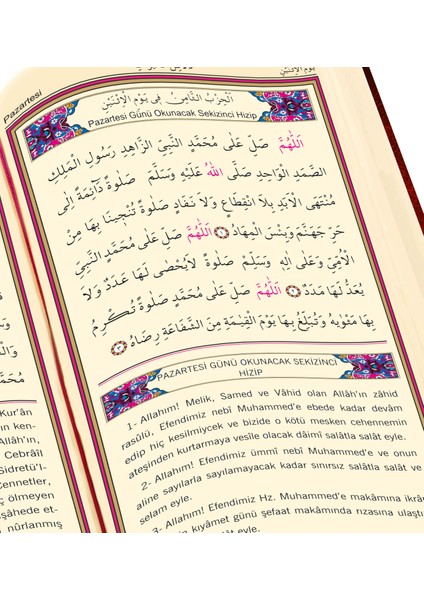 Pazartesi
يَوْمِ الْاِثْنَيْنِ
اَلْحِزْبُ الثَّامِنُ فِى يَوْمِ الْاِثْنَيْنِ
Pazartesi Günü Okunacak Sekizinci Hizip
اَللّٰهُمَّ صَلِّ عَلٰى مُحَمَّدٍ النَّبِىِّ الزَّاهِدِ رَسُولِ الْمَلِكِ
الصَّمَدِ الْوَاحِدِ صَلَّى اللّٰهُ عَلَيْهِ وَسَلَّمَ صَلٰوةً دَٓائِمَةً اِلٰى
مُنْتَهَى الْاَبَدِ بِلَا انْقِطَاعٍ وَلَا نَفَادٍ صَلٰوةً تُنْجِينَا بِهَا مِنْ
حَرِّ جَهَنَّمَ وَبِئْسَ الْمِهَادُ اَللّٰهُمَّ صَلِّ عَلٰى مُحَمَّدٍ النَّبِىِّ
الْاُمِّىِّ وَعَلٰى اٰلِهِ وَسَلِّمْ صَلٰوةً لَايُحْصٰى لَهَا عَدَدٌ وَلَا
يُعَدُّ لَهَا مَدَدٌ اَللّٰهُمَّ صَلِّ عَلٰى مُحَمَّدٍ صَلٰوةً تُكْرِمُ
بِهَا مَثْوٰيهُ وَتُبَلِّغُ بِهَا يَوْمَ الْقِيٰمَةِ مِنَ الشَّفَاعَةِ رِضَاهُ
PAZARTESİ GÜNÜ OKUNACAK SEKİZİNCİ
HİZİP
1- Allahım! Melik, Samed ve Vâhid olan Allâh'ın zâhid
rasûlü, Efendimiz nebî Muhammed'e ebede kadar devâm
edip hiç kesilmiyecek ve bizide o kötü mesken cehennemin
ateşinden kurtarmaya vesîle olacak dâimî salâtla salât eyle.
2- Allahım! Efendimiz ümmî nebî Muhammed'e ve onun
aline sayılarla sayılamayacak kadar sınırsız salâtla salât ve
selam eyle.
3- Allahım! Efendimiz Hz. Muhammed'e makamına ikrâ
kıyâmet günü şefaat makamında rızasına ulaştı
eyle.
Kur'ân
ın ken-
Allâh'ın,
Cebrâîl
Sidretü'l-
Cennetler,
ç ölmeyen
şâhede et-
nûrlanmış